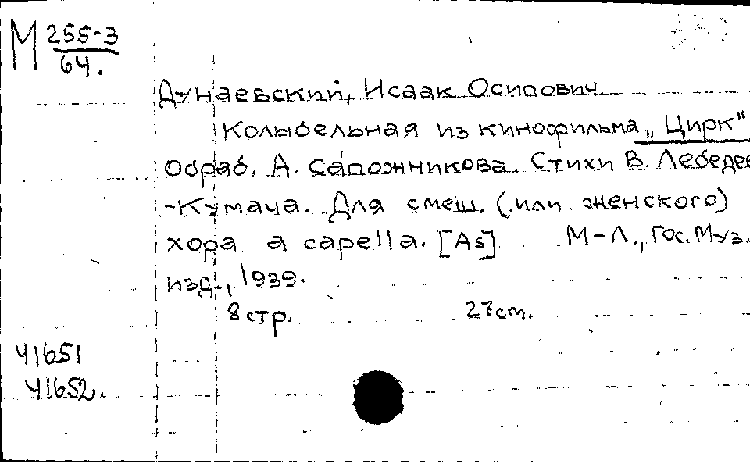 М 255-3
64.
Дунаевский, Исаак Осипович
Колыбельная из кинофильма „Цирк"
Обраб. А. Сапожникова. Стихи В. Лебедев
-Кумача. Для смеш. (или женского)
хора a capella. [As] М-Л., Гос. Муз.
изд., 1939.
8 стр. 27 cm.
41651
41652.